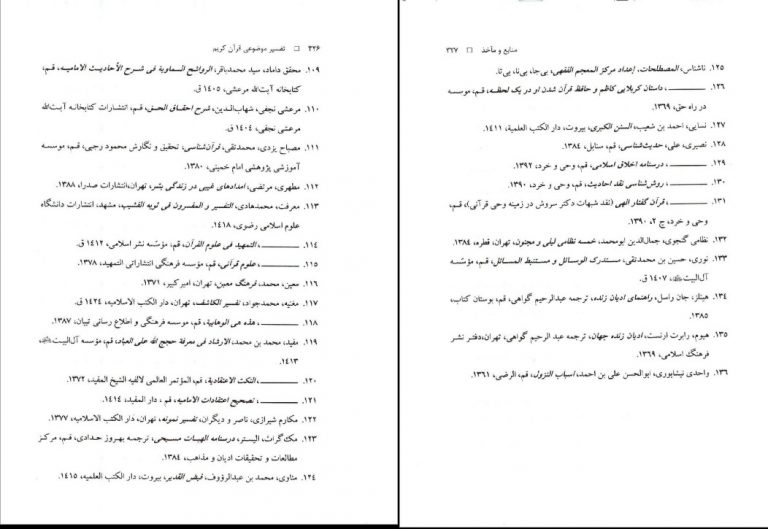 ۳۲۶ □ تفسیر موضوعی قرآن کریم
۱۰۹. محقق داماد، سید محمدباقر، الرواشح السماویة فی شرح الأحادیث الامامیه، قم،
کتابخانه آیت‌الله مرعشی، ۱۴۰۵ ق.
۱۱۰. مرعشی نجفی، شهاب‌الدین، شرح احقاق الحق، قم، انتشارات کتابخانه آیت‌الله
مرعشی نجفی، ۱۴۰۴ ق.
۱۱۱. مصباح یزدی، محمدتقی، قرآن‌شناسی، تحقیق و نگارش محمود رجبی، قم، موسسه
آموزشی پژوهشی امام خمینی، ۱۳۸۰.
۱۱۲. مطهری، مرتضی، امدادهای غیبی در زندگی بشر، تهران، انتشارات صدرا، ۱۳۸۸.
۱۱۳. معرفت، محمدهادی، التفسیر و المفسرون فی ثوبه القشیب، مشهد، انتشارات دانشگاه
علوم اسلامی رضوی، ۱۴۱۸.
۱۱۴. ـــــــــ، التمهید فی علوم القرآن، قم، مؤسّسه نشر اسلامی، ۱۴۱۲ ق.
۱۱۵. ـــــــــ، علوم قرآنی، قم، مؤسسه فرهنگی انتشاراتی التمهید، ۱۳۷۸.
۱۱۶. معین، محمد، فرهنگ معین، تهران، امیرکبیر، ۱۳۷۱.
۱۱۷. مغنیه، محمدجواد، تفسیر الکاشف، تهران، دار الکتب الاسلامیه، ۱۴۲۴ ق.
۱۱۸. ـــــــــ، هذه هی الوهابیة، قم، موسسه فرهنگی و اطلاع رسانی تبیان، ۱۳۸۷.
۱۱۹. مفید، محمد بن محمد، الارشاد فی معرفة حجج الله علی العباد، قم، مؤسسه آل‌البیت،
۱۴۱۳.
۱۲۰. ـــــــــ، النکت الاعتقادیة، قم، المؤتمر العالمی لالفیه الشیخ المفید، ۱۳۷۲.
۱۲۱. ـــــــــ، تصحیح اعتقادات الامامیه، قم، دار المفید، ۱۴۱۴.
۱۲۲. مکارم شیرازی، ناصر و دیگران، تفسیر نمونه، تهران، دار الکتب الاسلامیه، ۱۳۷۷.
۱۲۳. مک‌گراث، الیستر، درسنامه الهیات مسیحی، ترجمه بهروز حدادی، قم، مرکز
مطالعات و تحقیقات ادیان و مذاهب، ۱۳۸۴.
۱۲۴. مناوی، محمد بن عبدالرؤوف، فیض القدیر، بیروت، دار الکتب العلمیه، ۱۴۱۵ ق.
منابع و مآخذ □ ۳۲۷
۱۲۵. ناشناس، المصطلحات، إعداد مرکز المعجم الفقهی، بی‌جا، بی‌نا، بی‌تا.
۱۲۶. ـــــــــ، داستان کربلایی کاظم و حافظ قرآن شدن او در یک لحظه، قم، موسسه
در راه حق، ۱۳۶۹.
۱۲۷. نسایی، احمد بن شعیب، السنن الکبری، بیروت، دار الکتب العلمیة، ۱۴۱۱.
۱۲۸. نصیری، علی، حدیث‌شناسی، قم، سنابل، ۱۳۸۴.
۱۲۹. ـــــــــ، درسنامه اخلاق اسلامی، قم، وحی و خرد، ۱۳۹۲.
۱۳۰. ـــــــــ، روش‌شناسی نقد احادیث، قم، وحی و خرد، ۱۳۹۰.
۱۳۱. ـــــــــ، قرآن گفتار الهی (نقد شبهات دکتر سروش در زمینه وحی قرآنی)، قم،
وحی و خرد، چ ۲، ۱۳۹۰.
۱۳۲. نظامی گنجوی، جمال‌الدین ابومحمد، خمسه نظامی لیلی و مجنون، تهران، قطره، ۱۳۸۴.
۱۳۳. نوری، حسین بن محمدتقی، مستدرک الوسائل و مستنبط المسائل، قم، مؤسّسه
آل‌البیت، ۱۴۰۷ ق.
۱۳۴. هینلز، جان راسل، راهنمای ادیان زنده، ترجمه عبدالرحیم گواهی، قم، بوستان کتاب،
۱۳۸۵.
۱۳۵. هیوم، رابرت ارنست، ادیان زنده جهان، ترجمه عبد الرحیم گواهی، تهران، دفتر نشر
فرهنگ اسلامی، ۱۳۶۹.
۱۳۶. واحدی نیشابوری، ابوالحسن علی بن احمد، اسباب النزول، قم، الرضی، ۱۳۶۱.